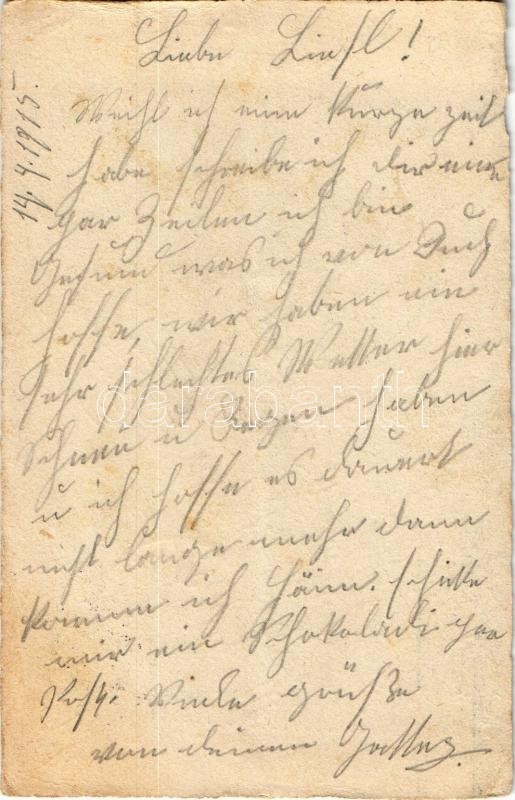 14.4.1915.
Liebe Liesl!
Weihl ich eine kurze zeit
habe schreibe ich dir eine
par Zeilen ich bin
Gesund was ich von Euch
hoffe, wir haben ein
sehr schlechtes Wetter hier
Schnee u Regen haben
u ich hoffe es dauert
nicht lange mehr dann
komme ich Heim. schicke
mir ein Schokoladi per
Post. Viele grüße
von deinen
darabanth.com